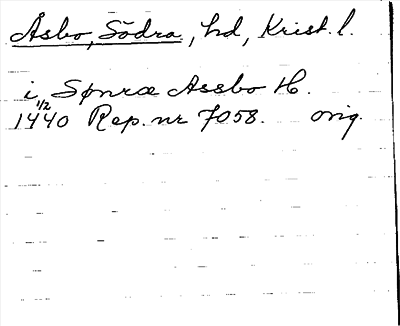 Åsbo, Södra, hd, Krist. l.
i Sønræ Assbo H.
1440 1/2 Rep. nr 7058. orig.